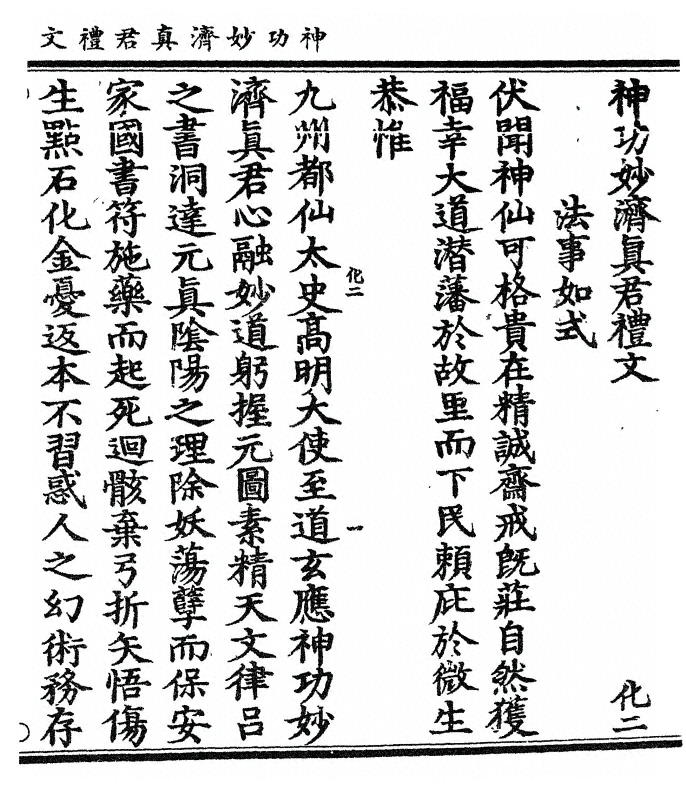 文禮君真濟妙功神
神功妙濟眞君禮文 化二
法事如式
伏聞神仙可格貴在精誠齋戒旣莊自然獲
福幸大道潜藩於故里而下民賴庇於微生
恭惟
九州都仙太史高明大使至道玄應神功妙
濟眞君心融妙道躬握元圖素精天文律呂
之書洞達元眞陰陽之理除妖蕩孽而保安
家國書符施藥而起死迴骸棄弓折矢悟傷
生點石化金憂返本不習惑人之幻術務存
化二
一